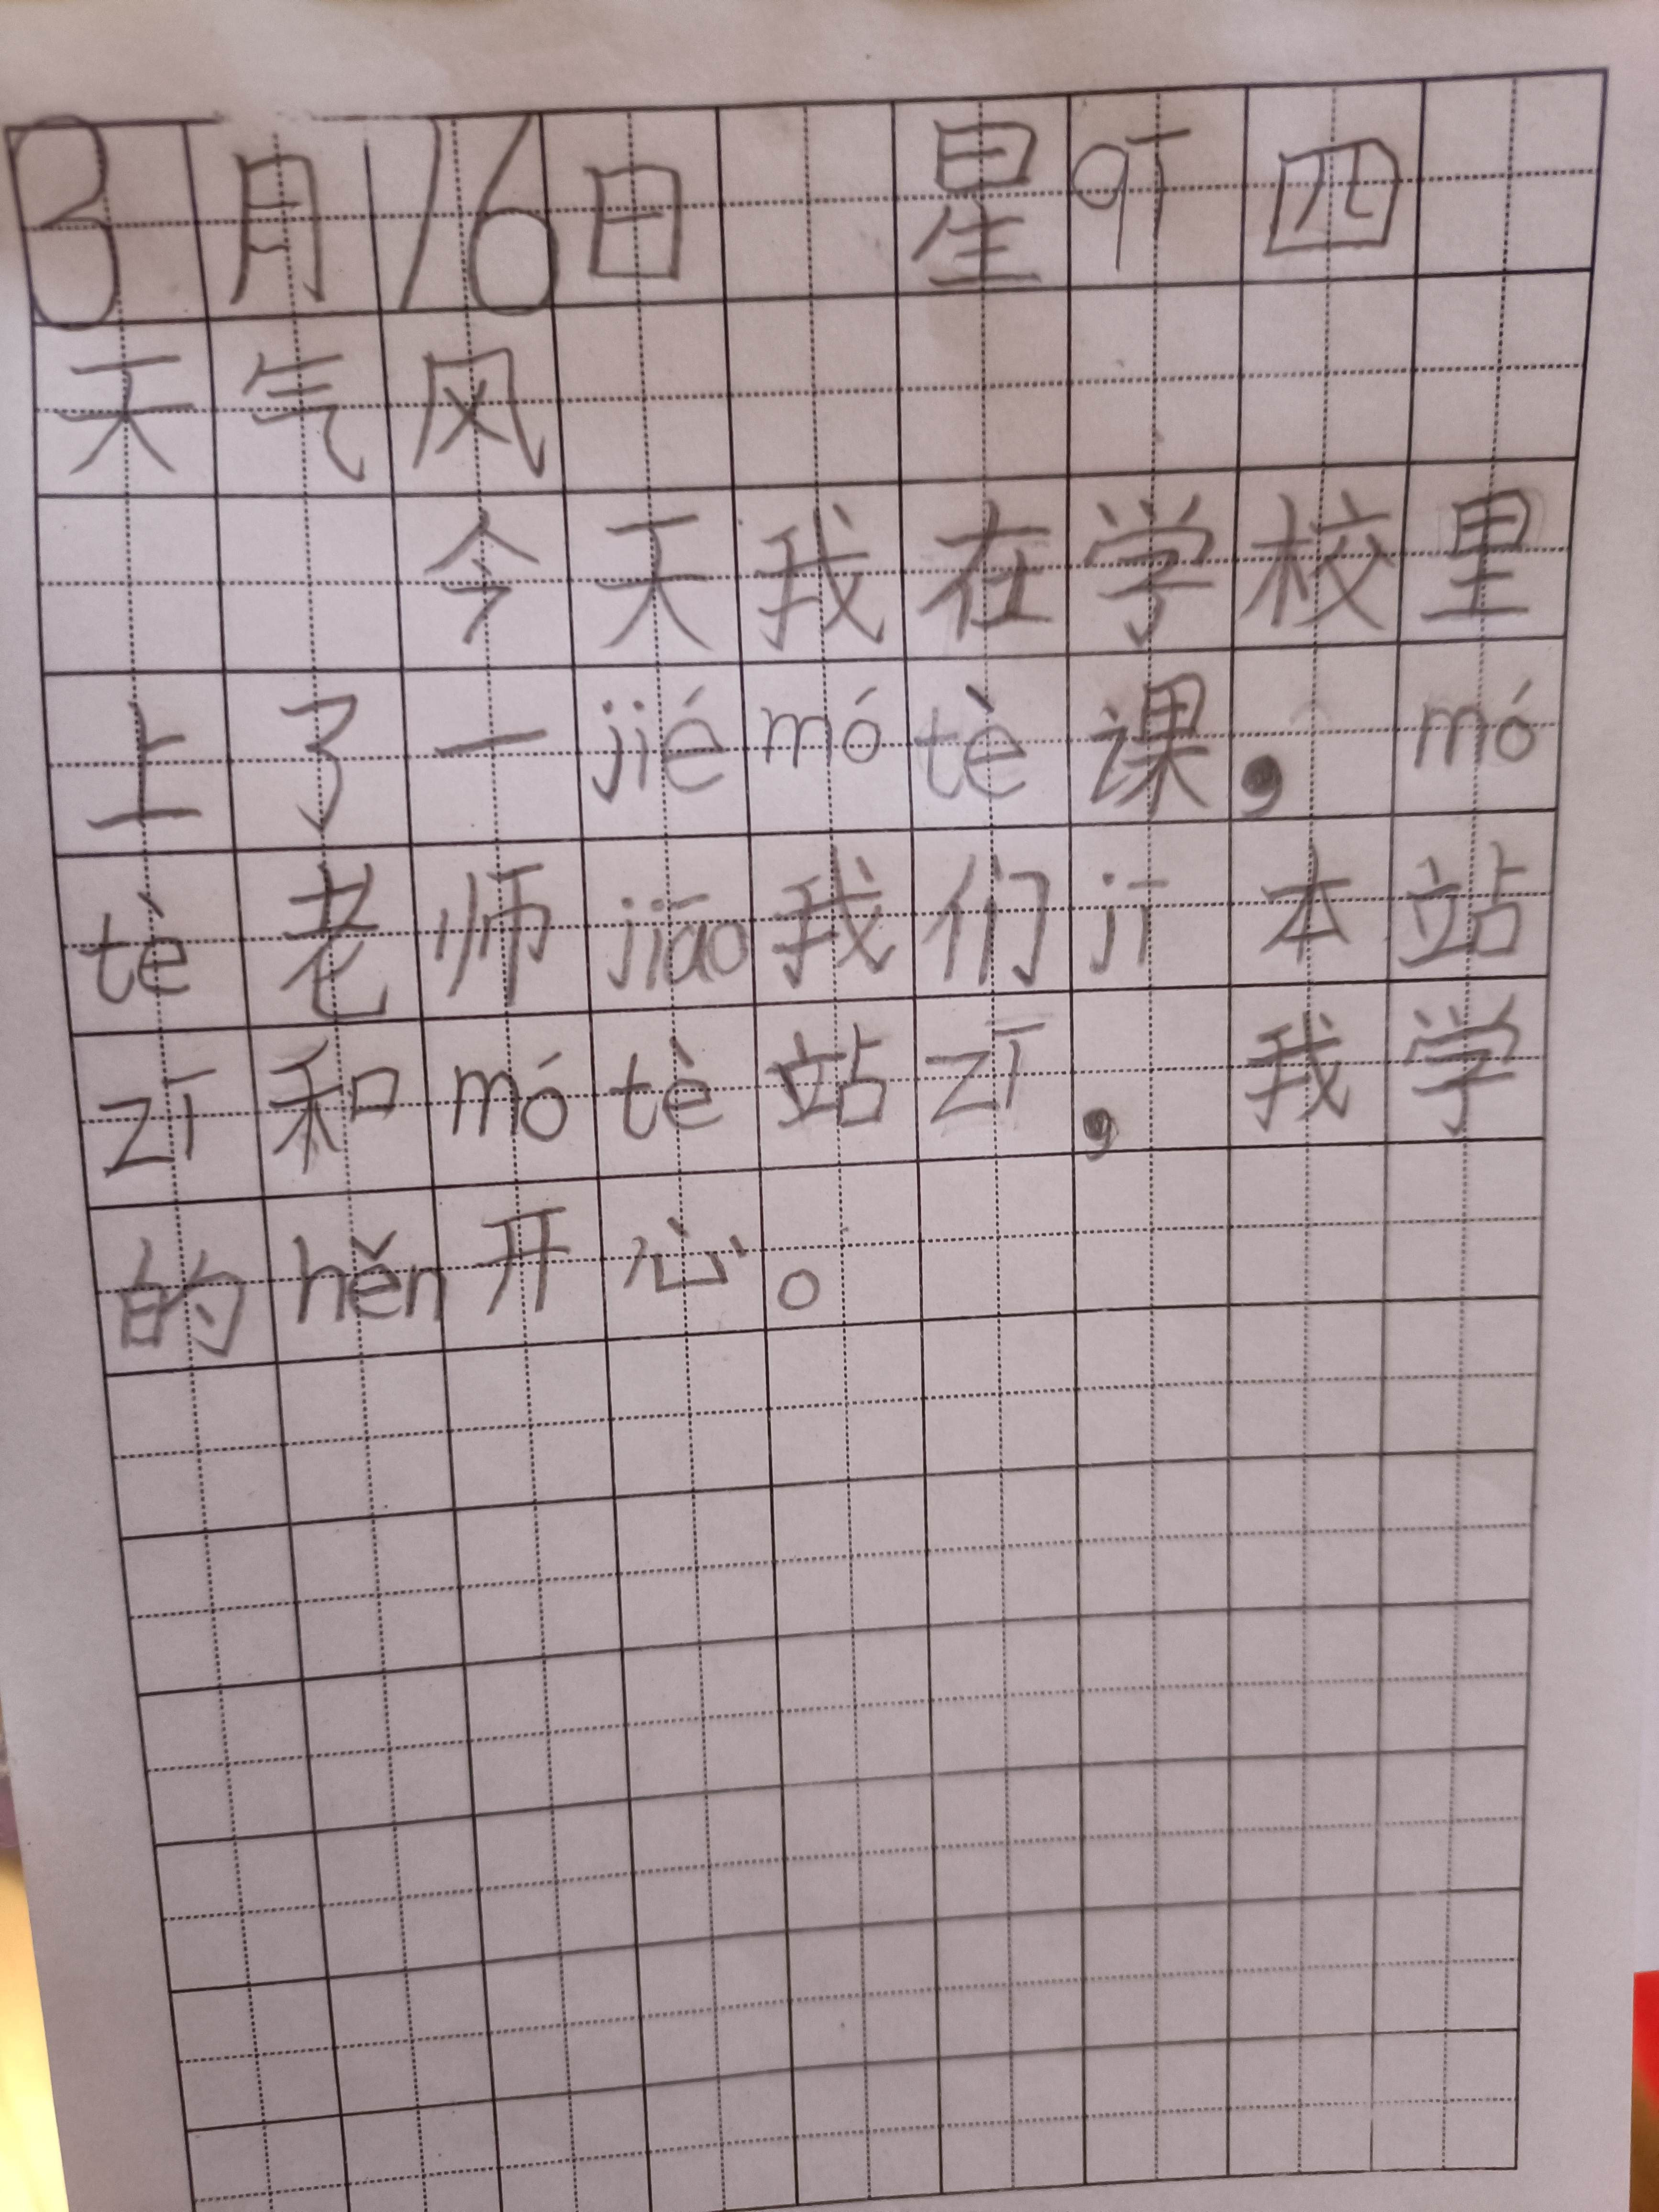 3月16日 星qī四
天气风
今天我在学校里
上了一jiémótè课，mó
tè老师jiāo我们jī本站
zī和mótè站zī，我学
的hěn开心。